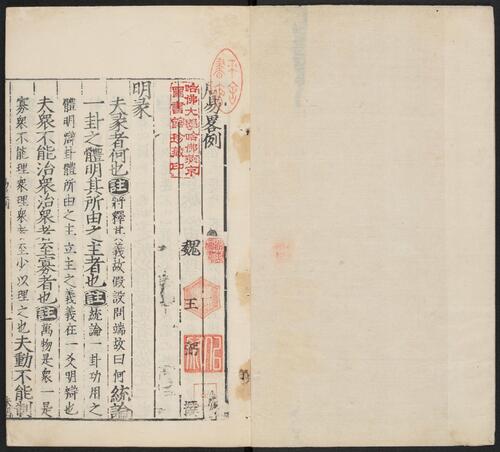 周易畧例
哈佛大學哈佛燕京
圖書館珍藏印
魏 王 弼 著
明彖
夫彖者何也註將釋其義故假設問端故曰何統論
一卦之體明其所由之主者也註統論一卦功用之
體明辯卦體所由之主立主之義義在一爻明辯也
夫衆不能治衆治衆者至寡者也註萬物是衆一是
寡衆不能理衆理衆者至少以理之也夫動不能制